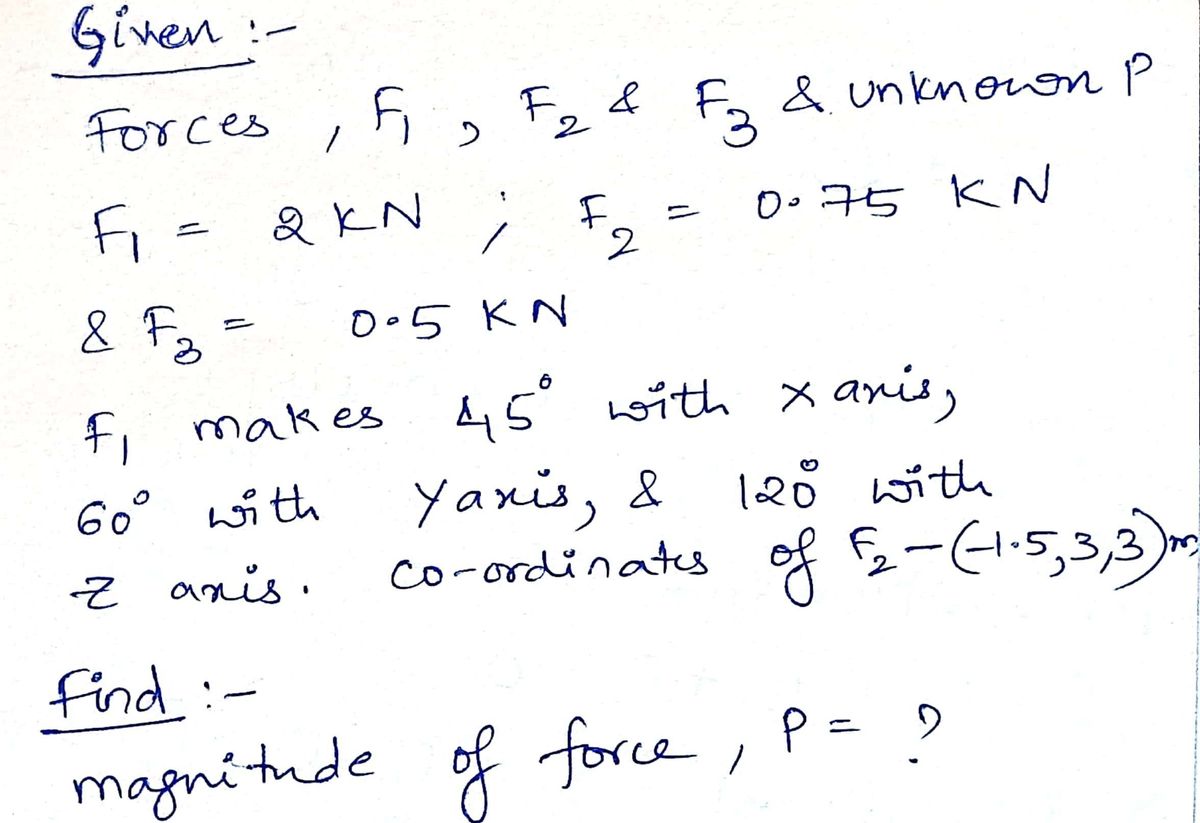 Given :-
Forces , F1 , F2 & F3 & unknown P
F1 = 2 KN ; F2 = 0.75 KN
& F3 = 0.5 KN
F1 makes 45° with x axis,
60° with Y axis, & 120° with
Z axis. co-ordinates of F2 - (-1.5,3,3)m
Find :-
magnitude of force , P = ?